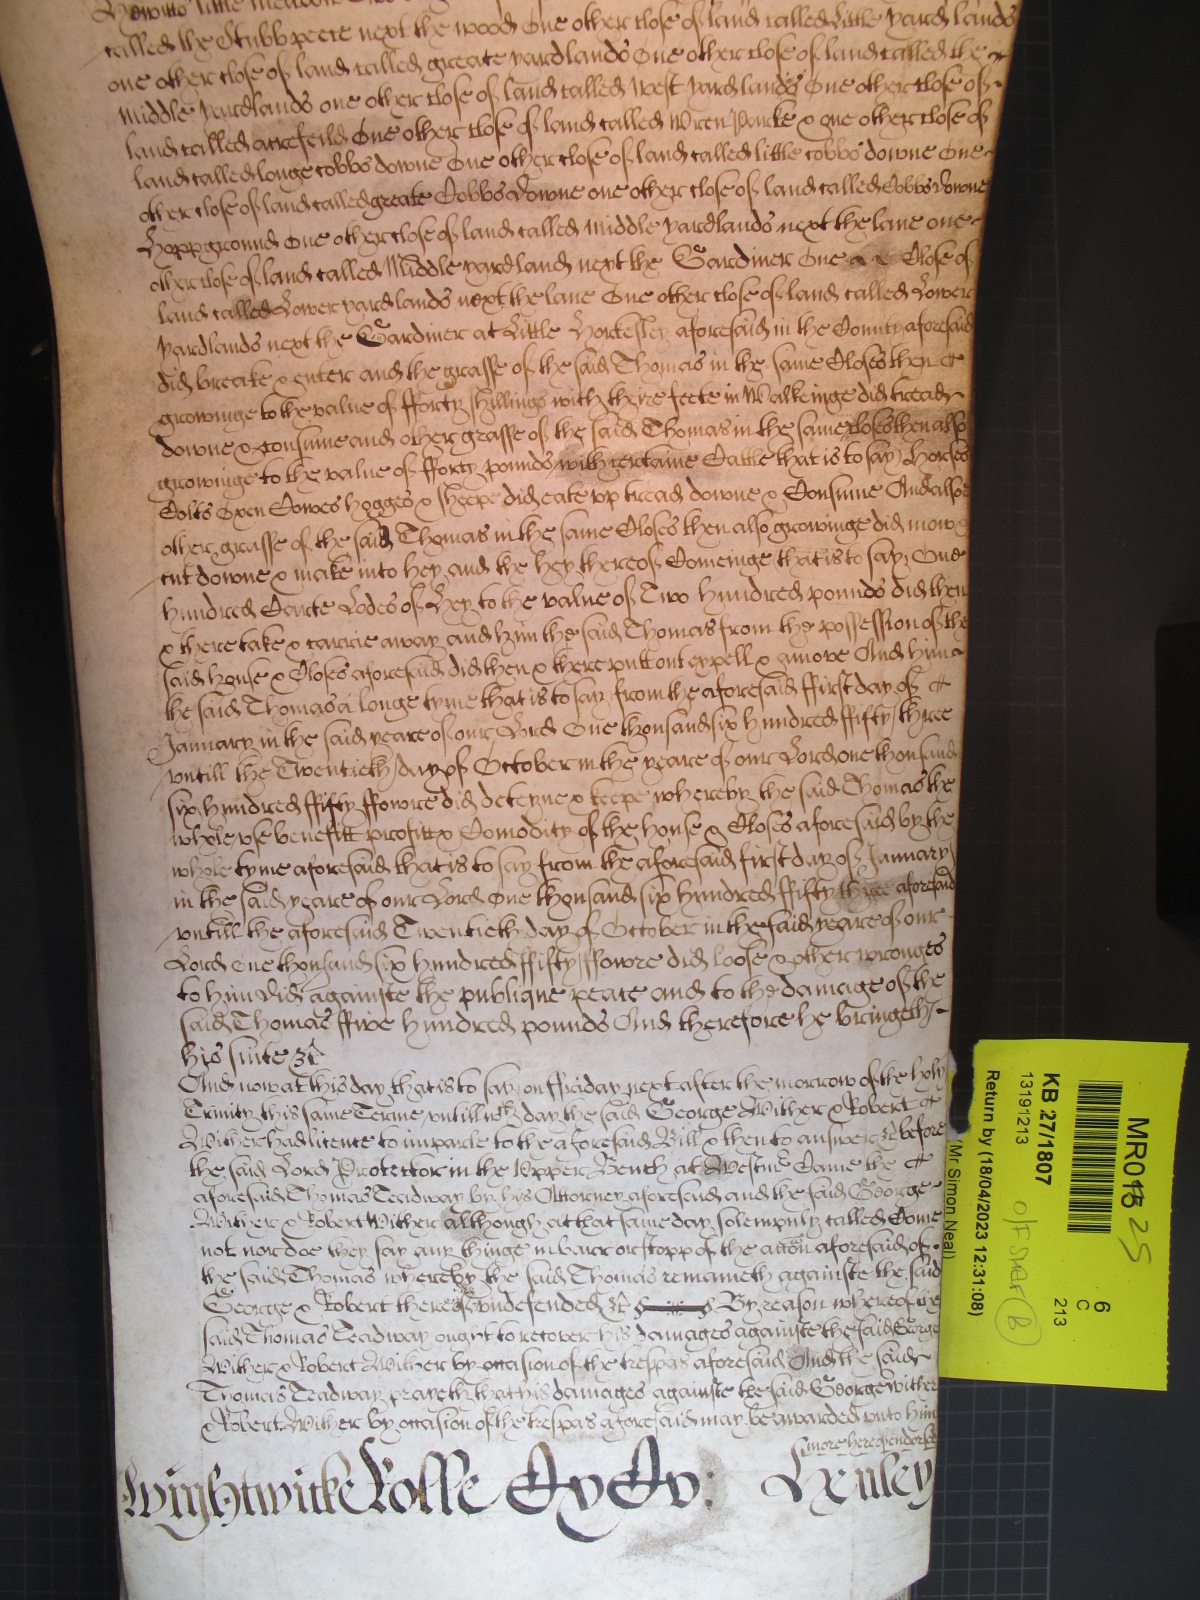 little meadow
called the Stubb peece next the wood One other close of land called Little yard lands
one other close of land called greate yardlands One other close of land called the
Middle yardlands one other close of land called West yardlands One other close of
land called acrefeild One other close of land called Wren Parke & one other close of
land called longe cobbs downe One other close of land called little cobbs downe One
other close of land called greate Cobbs downe one other close of land called Cobbs downe
Hoppground One other close of land called Middle yardlands next the lane one
other close of land called Middle yardland next the Gardiner One Close of
land called Lower yardlands next the lane One other close of land called Lower
yardlands next the Gardiner at Little Horkesley aforesaid in the County aforesaid
did breake & enter and the grasse of the said Thomas in the same Closes then
growinge to the value of fforty shillings with theire feete in Walkeinge did tread
downe & consume and other grasse of the said Thomas in the same closes then also
growinge to the value of fforty pounds with certaine Cattle that is to say Horses
Colts Oxen Cowes hogges & sheepe did eate vp tread downe & Consume And also
other grasse of the said Thomas in the same Closes then also growinge did mow
cut downe & make into hey and the hey thereof Comeinge that is to say One
hundred Carte Lodes of Hey to the value of Two hundred pounds did then
& there take & carrie away and him the said Thomas from the possession of the
said house & Closes aforesaid did then & there putt out expell & amove And him
the said Thomas a longe tyme that is to say from the aforesaid ffirst day of
January in the said yeare of our Lord One thousand six hundred ffifty three
vntill the Twentieth day of October in the yeare of our Lord one thousand
six hundred ffifty ffowre did deteyne & keepe whereby the said Thomas the
whole vse benefitt profitt & Comodity of the house & Closes aforesaid by the
whole tyme aforesaid that is to say from the aforesaid first day of January
in the said yeare of our Lord One thousand six hundred ffifty three aforesaid
vntill the aforesaid Twentieth day of October in the said yeare of our
Lord One thousand six hundred ffifty ffowre did loose & other wronges
to him did againste the publique peace and to the damage of the
said Thomas ffive hundred pounds And therefore he bringeth
his suite &c
And now at this day that is to say on ffriday next after the morrow of the holy
Trinity this same Terme vntill wch day the said George Wither & Robert
Wither had licence to imparle to the aforesaid Bill & then to answer &c before
the said Lord Protector in the Vpper Bench at Westmr Came the
aforesaid Thomas Teadway by his Attorney aforesaid and the said George
Wither & Robert Wither although at that same day solempnly called Come
not nor doe they say any thinge in barr or stopp of the accon aforesaid of
the said Thomas whereby the said Thomas remaineth againste the said
George & Robert thereof vndefended &c By reason whereof the
said Thomas Teadway ought to recover his damages againste the said George
Wither & Robert Wither by occasion of the trespas aforesaid And the said
Thomas Teadway prayeth that his damages againste the said George Wither
& Robert Wither by occasion of the trespas aforesaid may be awarded vnto him
more hereof endorsed
Wightwicke Losse Lenley
MR01 25
6
C
213
KB 27/1807
13191213
O/F Shelf B
Return by (18/04/2023 12:31:08)
(Mr Simon Neal)